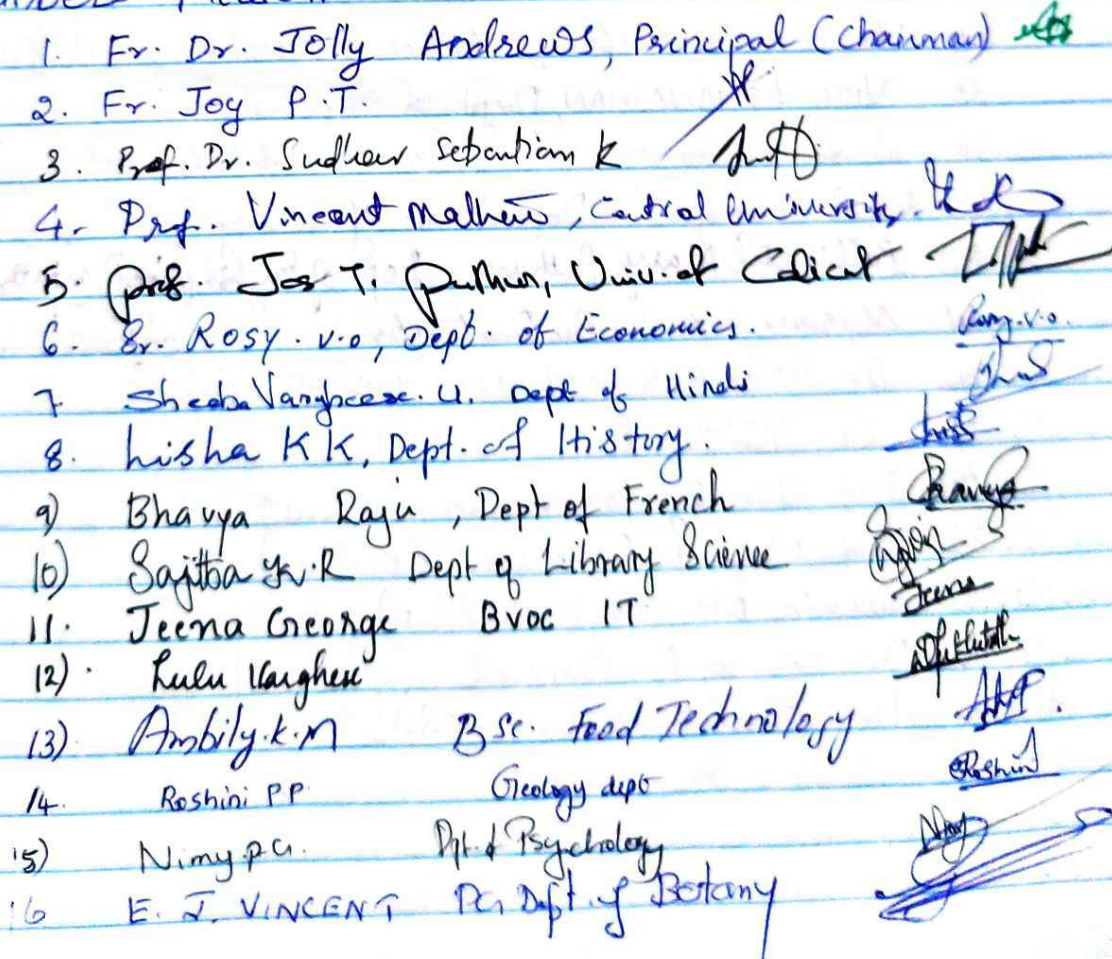 1. Fr. Dr. Jolly Andrews, Principal (Chairman)
2. Fr. Joy P.T.
3. Prof. Dr. Sebastian K
4. Prof. Vincent Mathew, Central University.
5. Prof. Jos T. Puthur, Univ. of Calicut
6. Sr. Rosy. V.O, Dept. of Economics. Rosy.V.O.
7 Sheeba Varghese. U. Dept of Hindi
8. Lisha K K, Dept. of History.
9) Bhavya Raju, Dept of French Bhavya
10) Sajitha K.R Dept of Library Science
11. Jeena George BVOC IT Jeena
12). Lulu Varghese
13) Ambily.K.M BSc. Food Technology
14. Roshini PP. Geology dept Roshini
15) Nimy P.G. Dpt. of Psychology
16 E. J. VINCENT PG Dept. of Botany